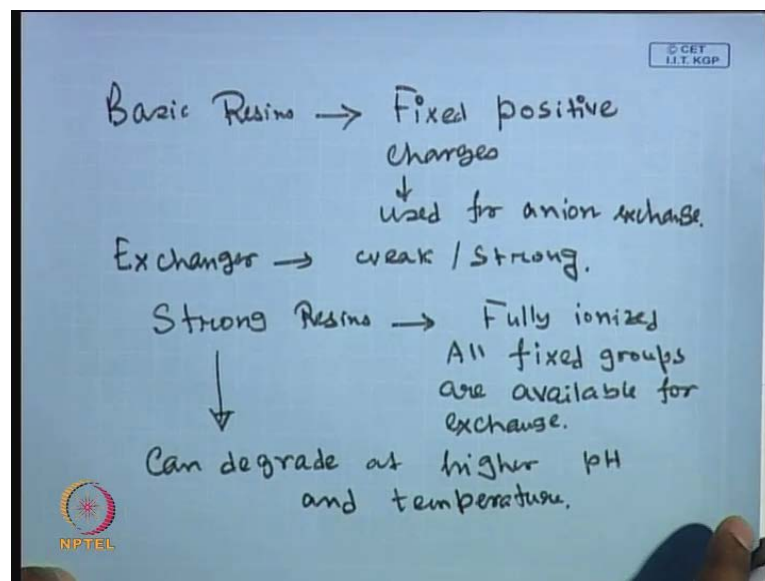 © CET
I.I.T. KGP
Basic Resins → Fixed positive
charges
↓
used for anion exchange.
Exchanger → weak / Strong.
Strong Resins → Fully ionized
All fixed groups
are available for
exchange.
↓
Can degrade at higher pH
and temperature.
NPTEL